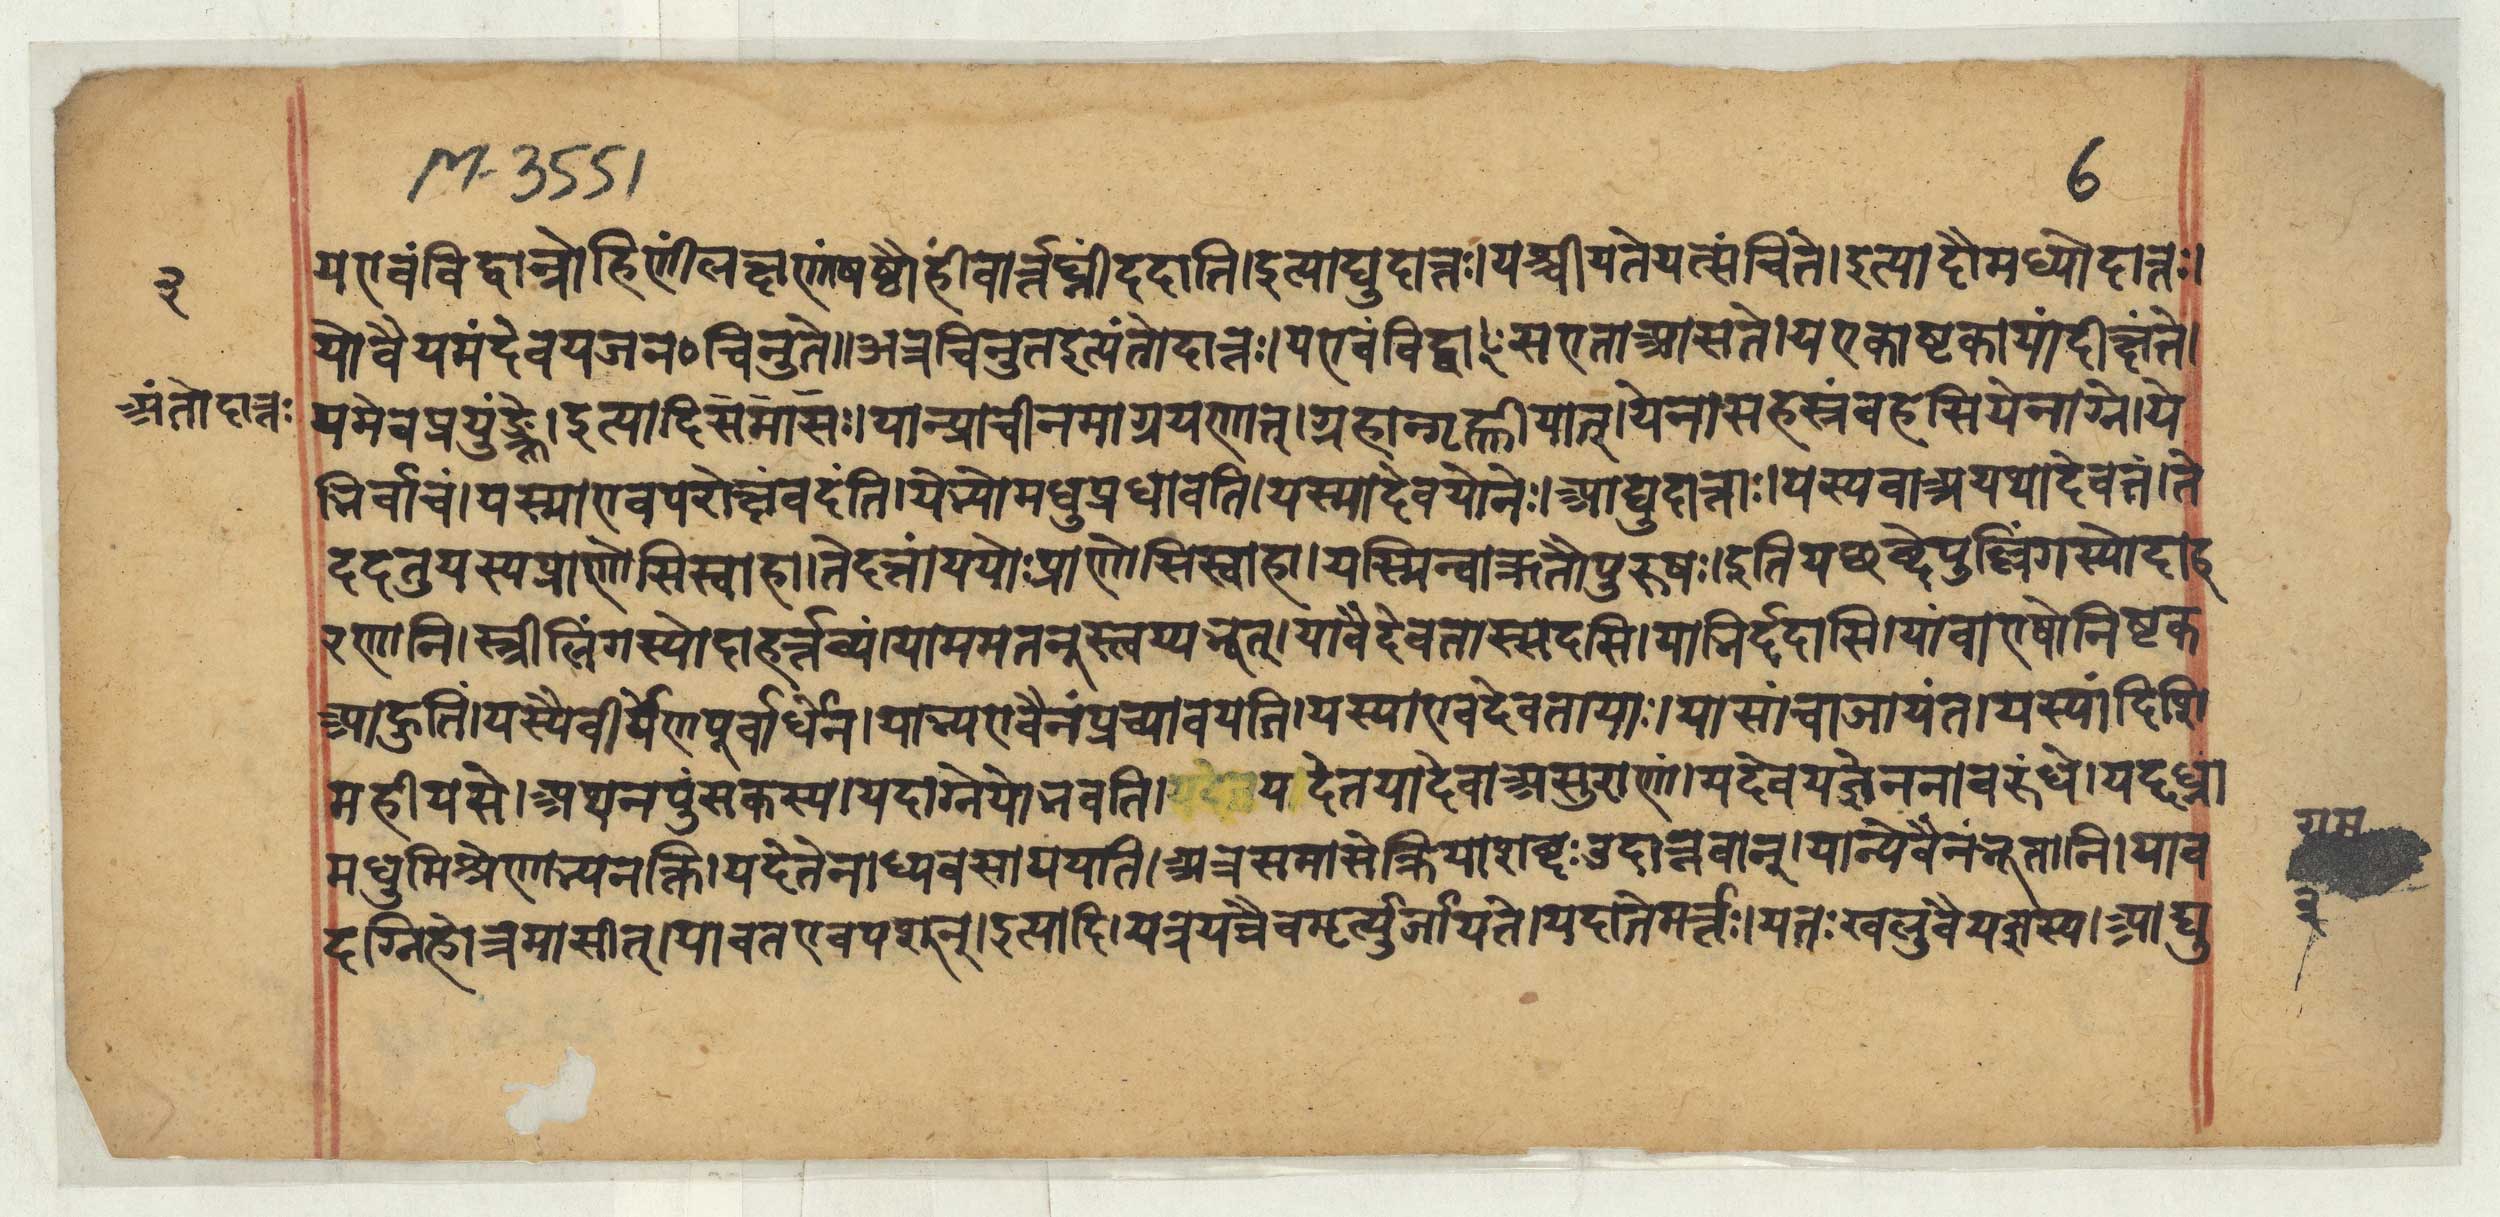 M-3551
6
३
यएवंविद्वान्रोहिणींलक्ष्मणांषष्ठौहींवार्त्रघ्नींददाति।इत्याद्युदात्तः।यश्चीयतेयत्संचिंते।इत्यादौमध्योदात्तः।
योवैयमंदेवयजन०चिनुते॥अत्रचिनुतइत्यंतोदात्तः।यएवंविद्वाꣳसएताआसते।यएकाष्टकायांदीक्षंते।
अंतोदात्तः
यमेवप्रयुंङ्क्ते।इत्यादिसमासः।यान्प्राचीनमाग्रयणात्।ग्रहान्गृह्णीयात्।येनासहस्रंवहसियेनाग्ने।ये
निर्वाचं।यस्माएवपरोक्षंवदंति।येभ्योमधुप्रधावति।यस्मादेवयोनेः।आद्युदात्ताः।यस्यवाअयथादेवतं।ते
ददतुयस्यप्राणोसिस्वाहा।तेदत्तांययोःप्राणोसिस्वाहा।यस्मिन्वाह्मतौपुरूषः।इतियछब्देपुल्लिंगस्योदाह
रणानि।स्त्रीलिंगस्योदाहर्त्तव्यं।यामममतनूस्त्वय्यभूत्।यांवैदेवतास्सदसि।यानिर्द्ददासि।यांवाएषोनिष्टक
आहुतिं।यस्यैवीर्येणपूर्वार्धेन।याभ्यएवैनंप्रच्यावयति।यस्याएवदेवतायाः।यासांचाजायंत।यस्यांदिशि
महीयसे।अथनपुंसकस्य।यदाग्नेयोभवति।यदेतयादेवाअसुराणां।यदेवयज्ञेननावरूंधे।यद्दध्ना
यम
मधुमिश्रेणाभ्यनक्ति।यदेतेनाध्यवसाययाति।अत्रसमासेक्रियाशब्दःउदात्तवान्।यान्येवैनंभूतानि।याव
३
दग्निहोत्रमासीत्।यावतएवपशून्।इत्यादि।यत्रयत्रैवमृर्त्युर्जायते।यदातेमर्त्तः।यतःखलुवैयज्ञस्य।आद्यु